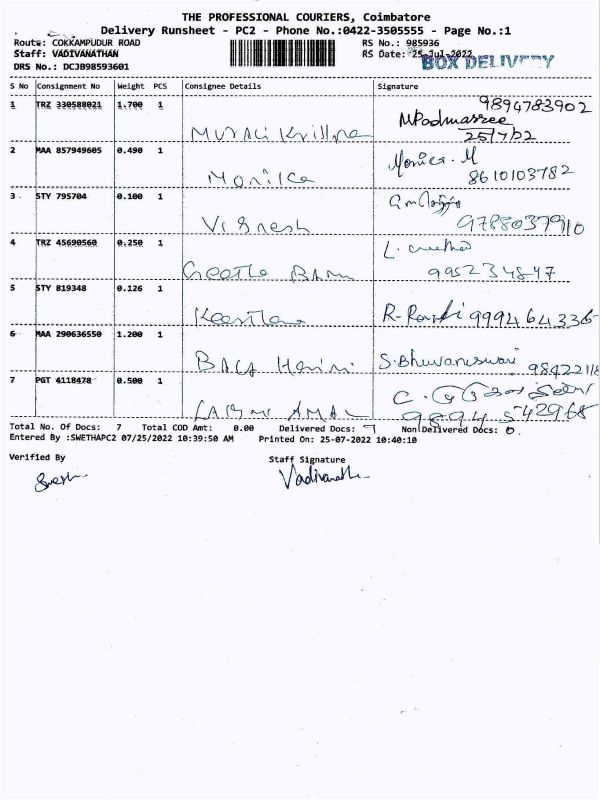 THE PROFESSIONAL COURIERS, Coimbatore
Delivery Runsheet - PC2 - Phone No.:0422-3505555 - Page No.:1
Route: COKKAMPUDUR ROAD
Staff: VADIVANATHAN
DRS No.: DCJB98593601
RS No.: 985936
RS Date: 25-Jul-2022
BOX DELIVERY
S No Consignment No Weight PCS Consignee Details Signature
1 TRZ 330588021 1.700 1 Murali Krishna MPadmasree 9894783902
25/7/22
2 MAA 857949605 0.490 1 Monika Monica. M
8610103782
3 STY 795704 0.100 1 Vignesh
9788037910
4 TRZ 45690560 0.250 1 Geetha L.
9952334847
5 STY 819348 0.126 1 Keerthana R- 9994664336
6 MAA 290636550 1.200 1 Bala Harini S.Bhuvaneswari 98422118
7 PGT 4118478 0.500 1 LAXMI AMAL C.
98945 42968
Total No. Of Docs: 7 Total COD Amt: 0.00 Delivered Docs: 7 Non Delivered Docs: 0.
Entered By :SWETHAPC2 07/25/2022 10:39:50 AM Printed On: 25-07-2022 10:40:10
Verified By Staff Signature
Vadivanath